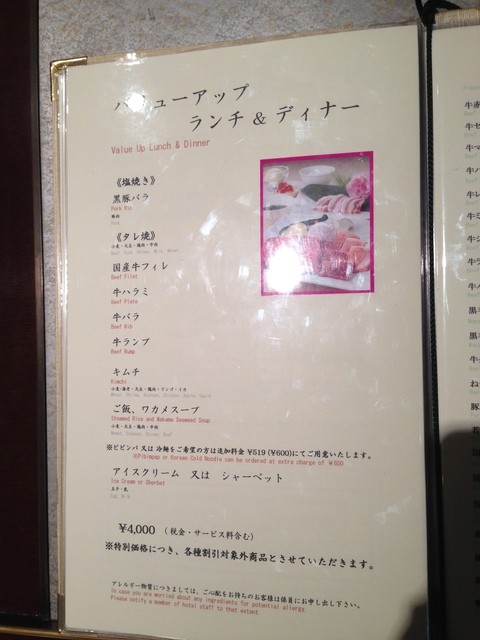 バリューアップ
ランチ & ディナー
Value Up Lunch & Dinner
《塩焼き》
黒豚バラ
Pork Rib
豚肉
Pork
《タレ焼》
小麦・大豆・鶏肉・牛肉
国産牛フィレ
Beef Filet
牛ハラミ
Beef Plate
牛バラ
Beef Rib
牛ランプ
Beef Rump
キムチ
Kimchi
小麦・海老・大豆・鶏肉・リンゴ・イカ
ご飯、ワカメスープ
Steamed Rice and Wakame Seaweed Soup
小麦・大豆・鶏肉・牛肉
※ビビンバ 又は 冷麺をご希望の方は追加料金 ¥519 (¥600)にてご用意いたします。
※Pibimpap or Korean Cold Noodle can be ordered at extra charge of ¥600
アイスクリーム 又は シャーベット
Ice Cream or Sherbet
玉子・乳
Egg, Milk
¥4,000 (税金・サービス料含む)
※特別価格につき、各種割引対象外商品とさせていただきます。
アレルギー物質につきましては、ご心配をお持ちのお客様は係員にお申し出下さい。
In case you are worried about any ingredients for potential allergy.
Please notify a member of hotel staff to that extent.